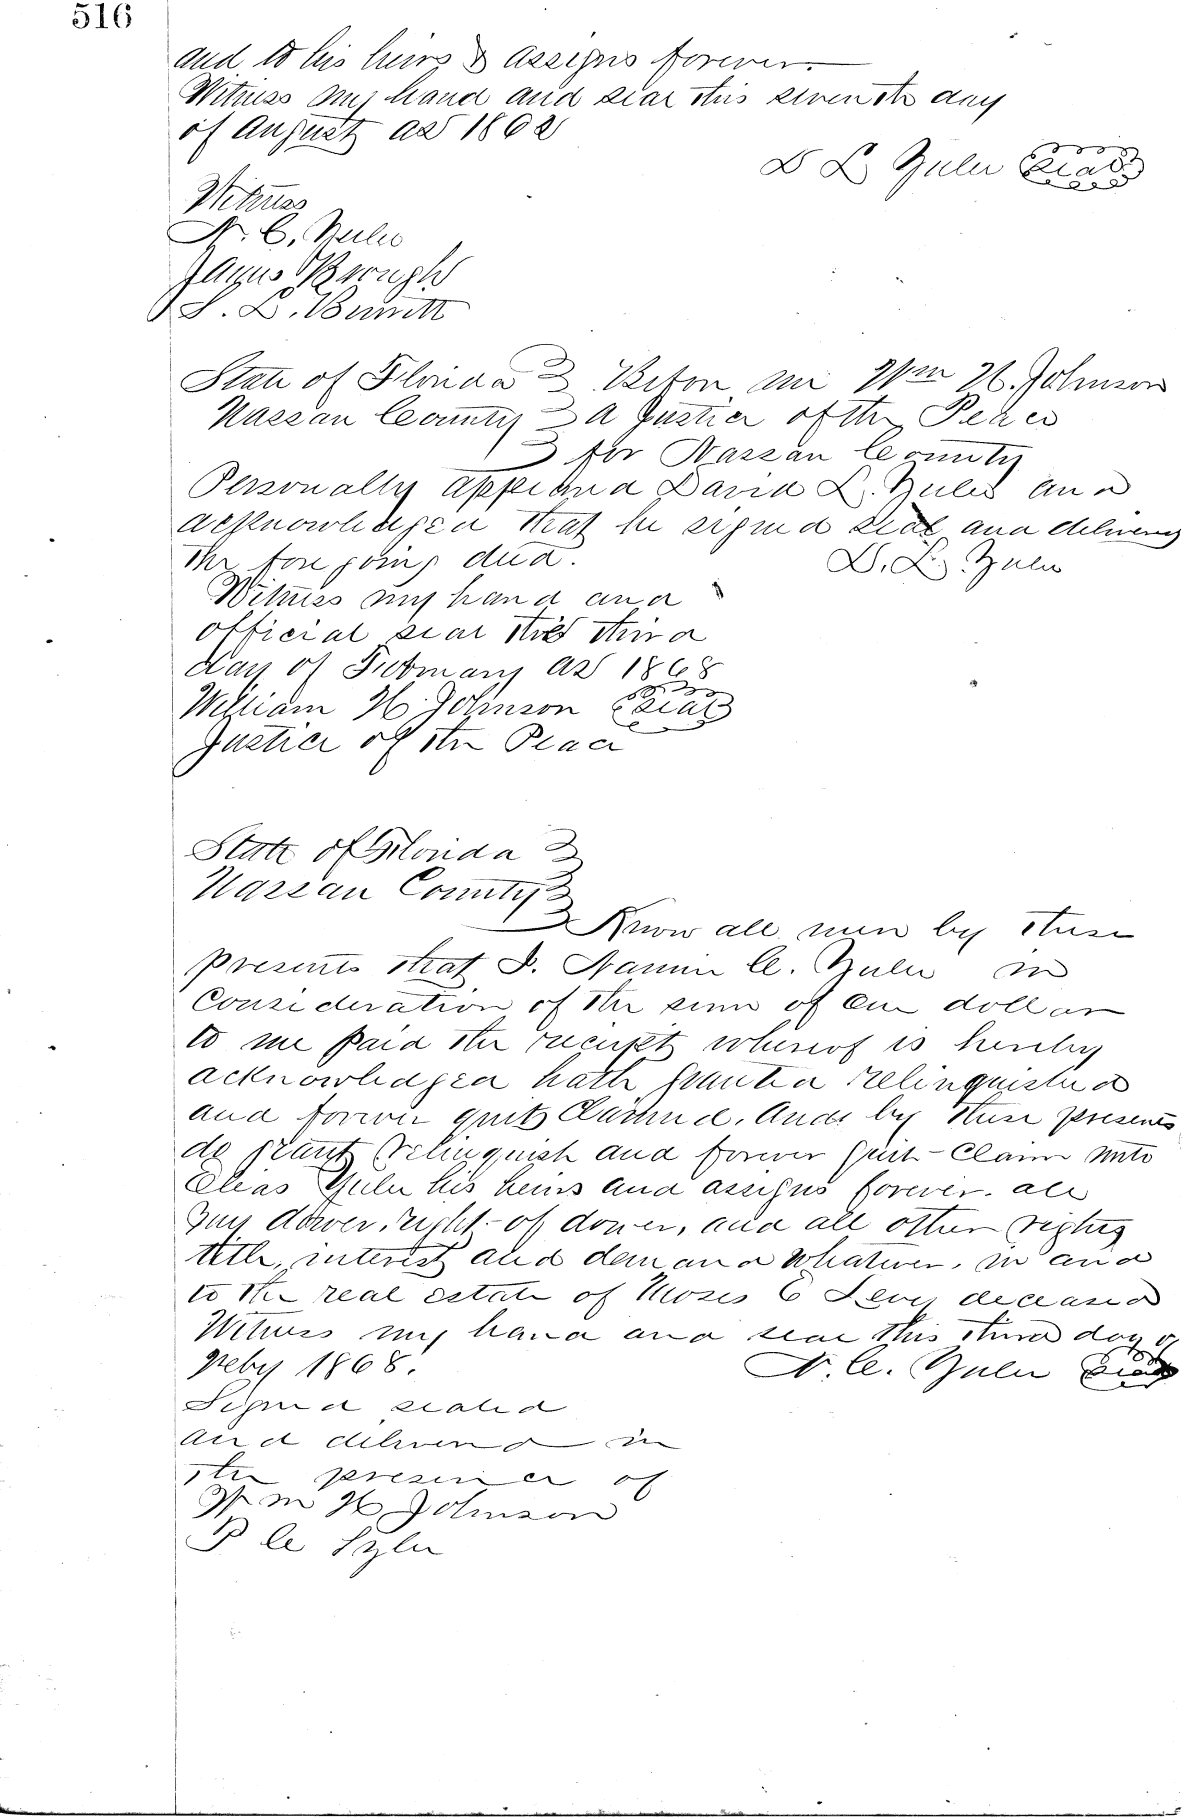 516
and to his heirs & assigns forever
Witness my hand and seal this seventh day
of August AD 1862
D L Yulee Seal
Witness
N. C. Yulee
James Brough
S. L. Burritt
State of Florida Before me Wm H. Johnson
Nassau County a Justice of the Peace
for Nassau County
Personally appeared David L. Yulee and
acknowledged that he signed seal and delivered
the fore going deed. D. L. Yulee
Witness my hand and
official seal this third
day of February AD 1868
William H Johnson Seal
Justice of the Peace
State of Florida
Nassau County
Know all men by these
presents that I. Nannie C. Yulee in
consideration of the sum of One dollar
to me paid the receipt whereof is hereby
acknowledged hath granted relinquished
and forever quit Claimed. And by these presents
do grant relinquish and forever quit-Claim unto
Elias Yulee his heirs and assigns forever. all
my dower, right of dower, and all other rights
title, interest and demand whatever, in and
to the real estate of Moses E Levy deceased
Witness my hand and seal this third day of
Feby 1868. N. C. Yulee Seal
Signed sealed
and delivered in
the presence of
Wm H Johnson
P C